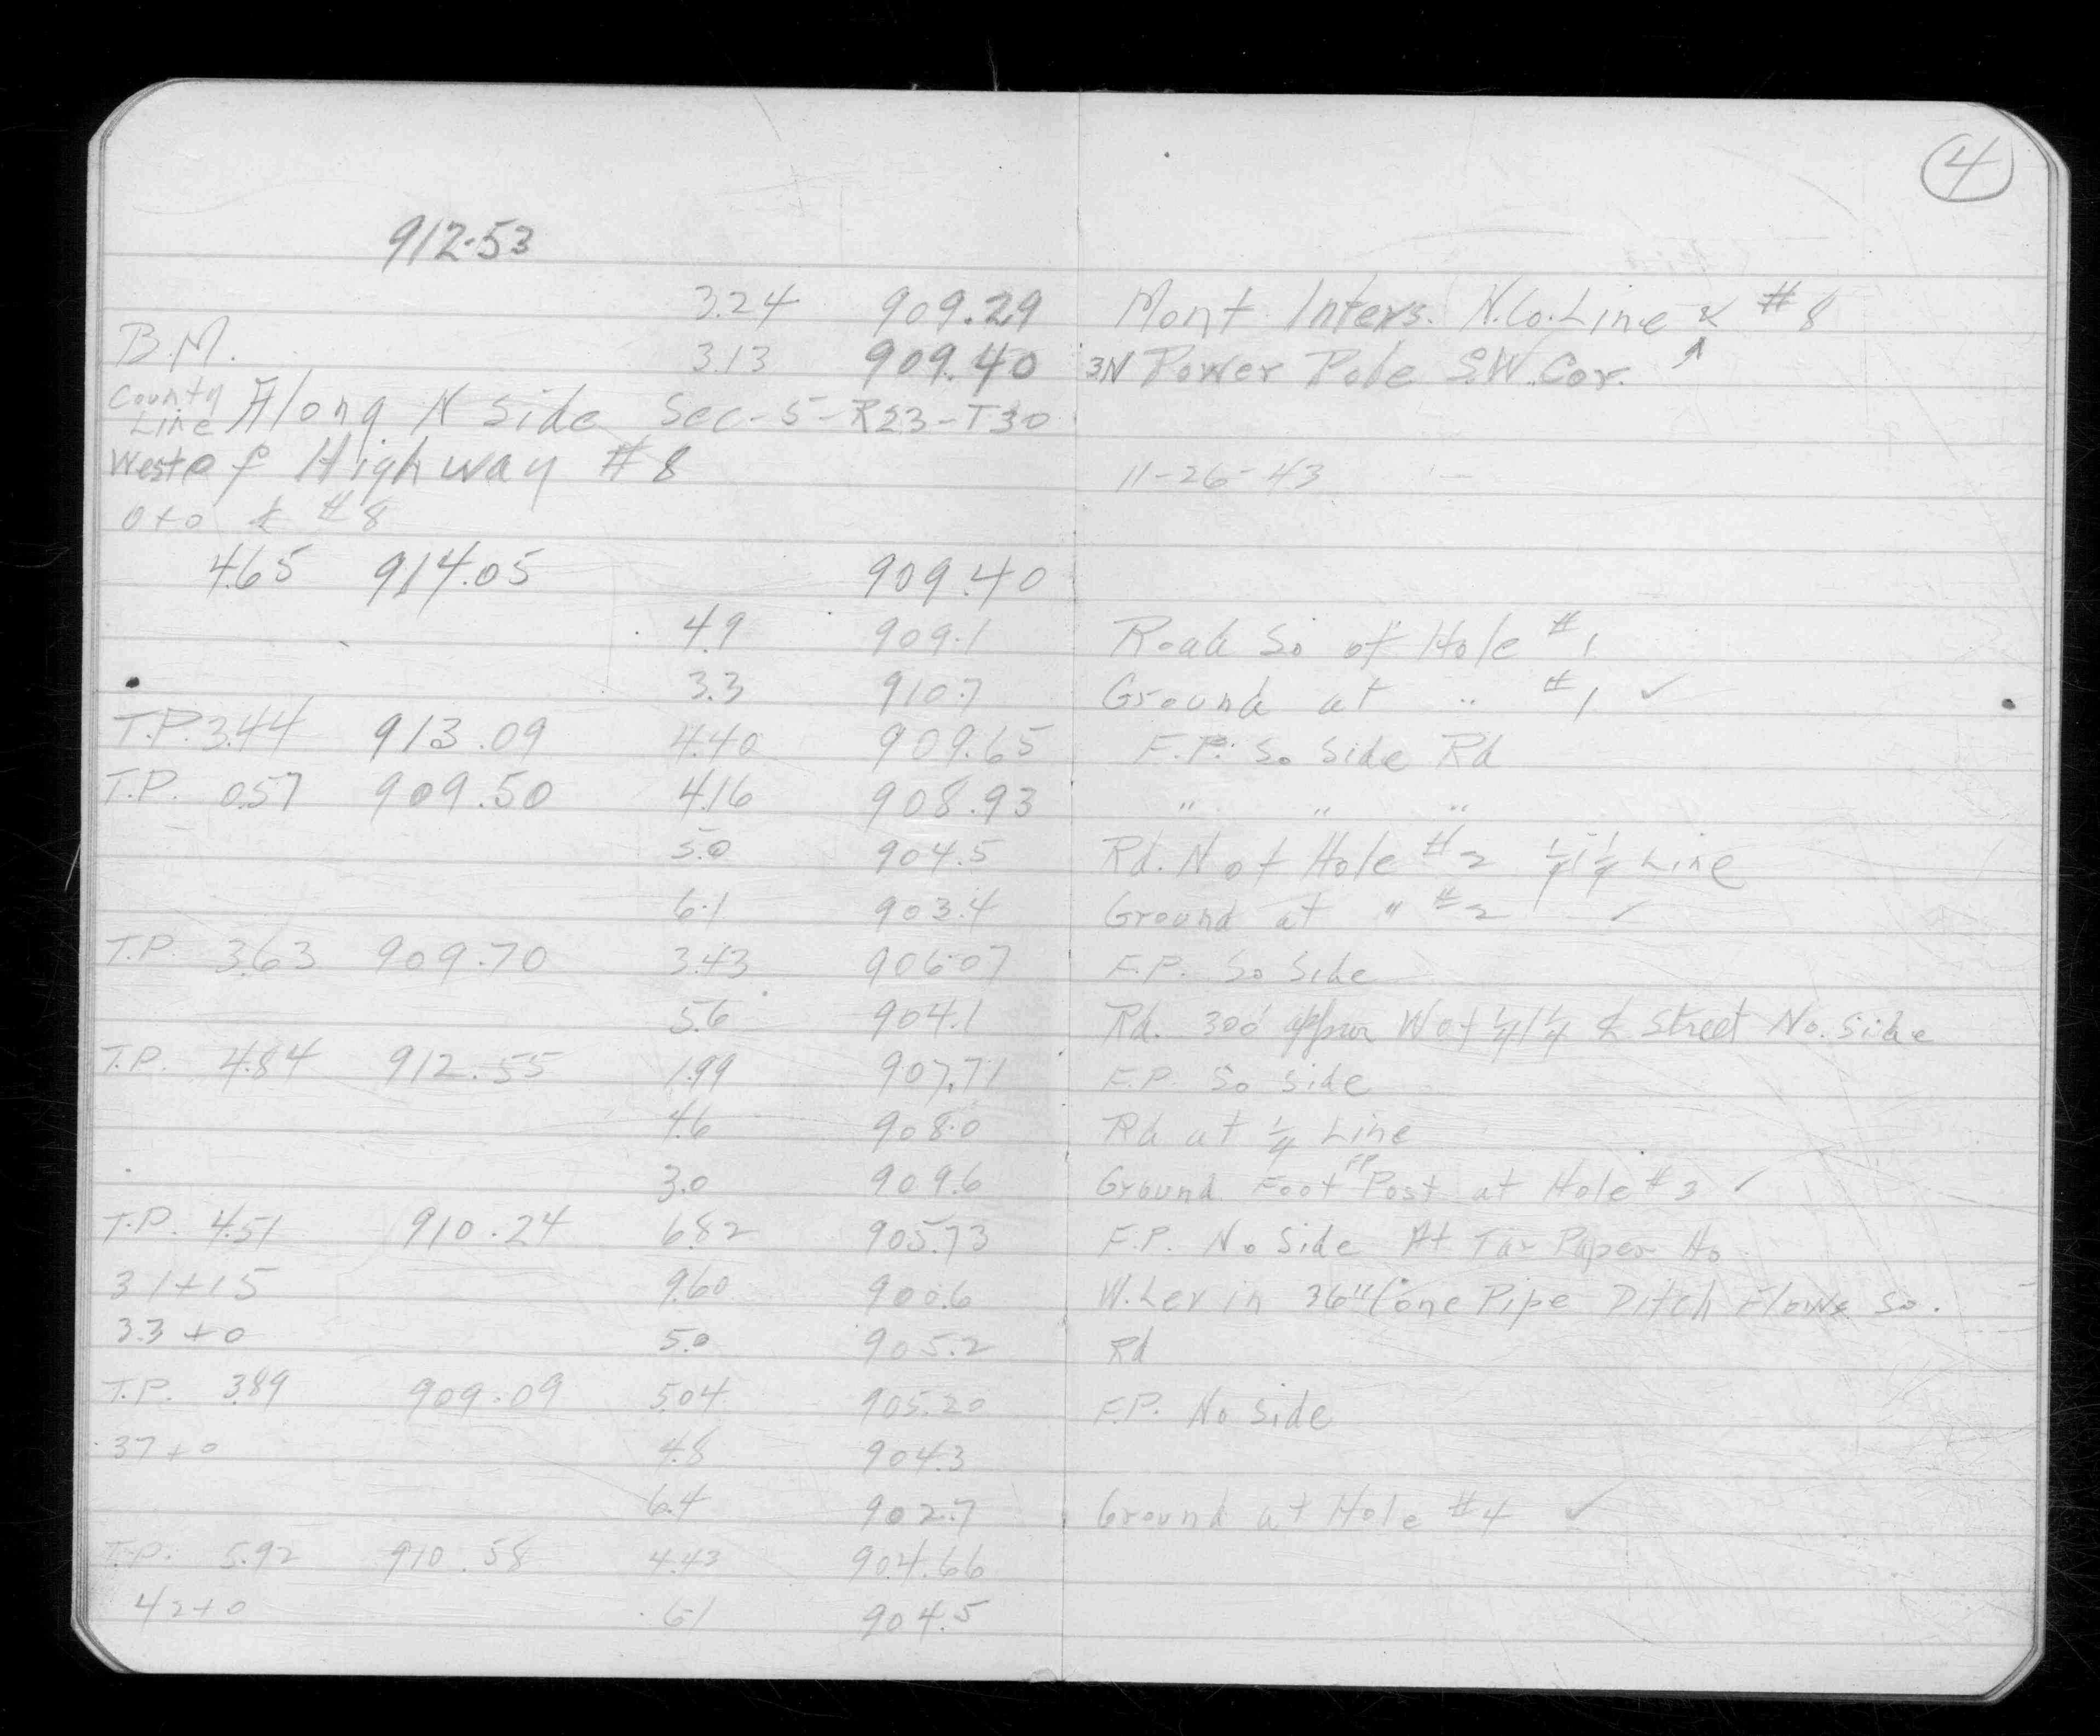 4
912.53
3.24 909.29 Mont Inters. N.Co.Line & #8
B.M. 3.13 909.40 3N Power Pole S.W. Cor.
County Line Along N side Sec-5-R23-T30
West of Highway #8 11-26-43
0+0 ℄ #8
4.65 914.05 909.40
4.9 909.1 Road So of Hole #1
3.3 910.7 Ground at " #1 ✓
T.P. 3.44 913.09 4.40 909.65 F.P. So Side Rd
T.P. 0.57 909.50 4.16 908.93 " " "
5.0 904.5 Rd. N of Hole #2 1/4 1/4 Line
6.1 903.4 Ground at " #2 ✓
T.P. 3.63 909.70 3.43 906.07 F.P. So Side
5.6 904.1 Rd. 300' approx W of 1/4 1/4 ℄ Street No. Side
T.P. 4.84 912.55 1.99 907.71 F.P. So Side
4.6 908.0 Rd at 1/4 Line
3.0 909.6 Ground Foot FP Post at Hole #3 ✓
T.P. 4.51 910.24 6.82 905.73 F.P. No Side At Tar Paper Ho.
31+15 9.60 900.6 W.Lev in 36" Conc Pipe Ditch Flows So.
33+0 5.0 905.2 Rd
T.P. 3.89 909.09 5.04 905.20 F.P. No Side
37+0 4.8 904.3
6.4 902.7 Ground at Hole #4 ✓
T.P. 5.92 910.58 4.43 904.66
42+0 6.1 904.5